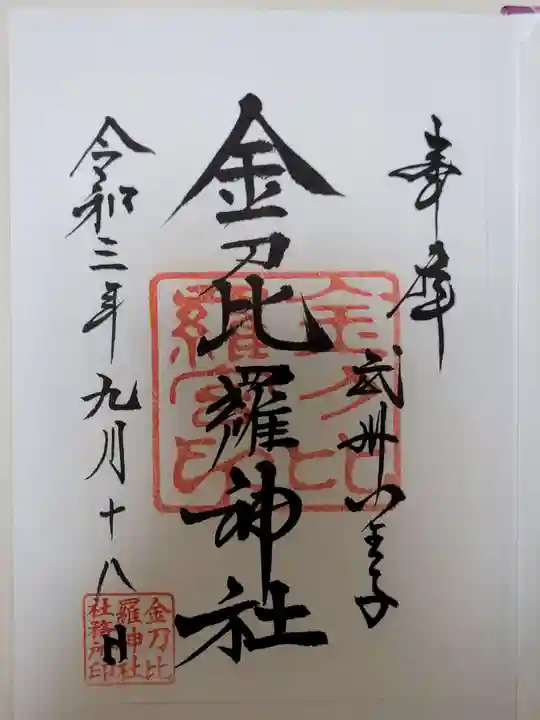 奉拝
武州八王子
金刀比羅神社
令和三年九月十八日
金刀比
羅宮印
金刀比
羅神社
社務所印